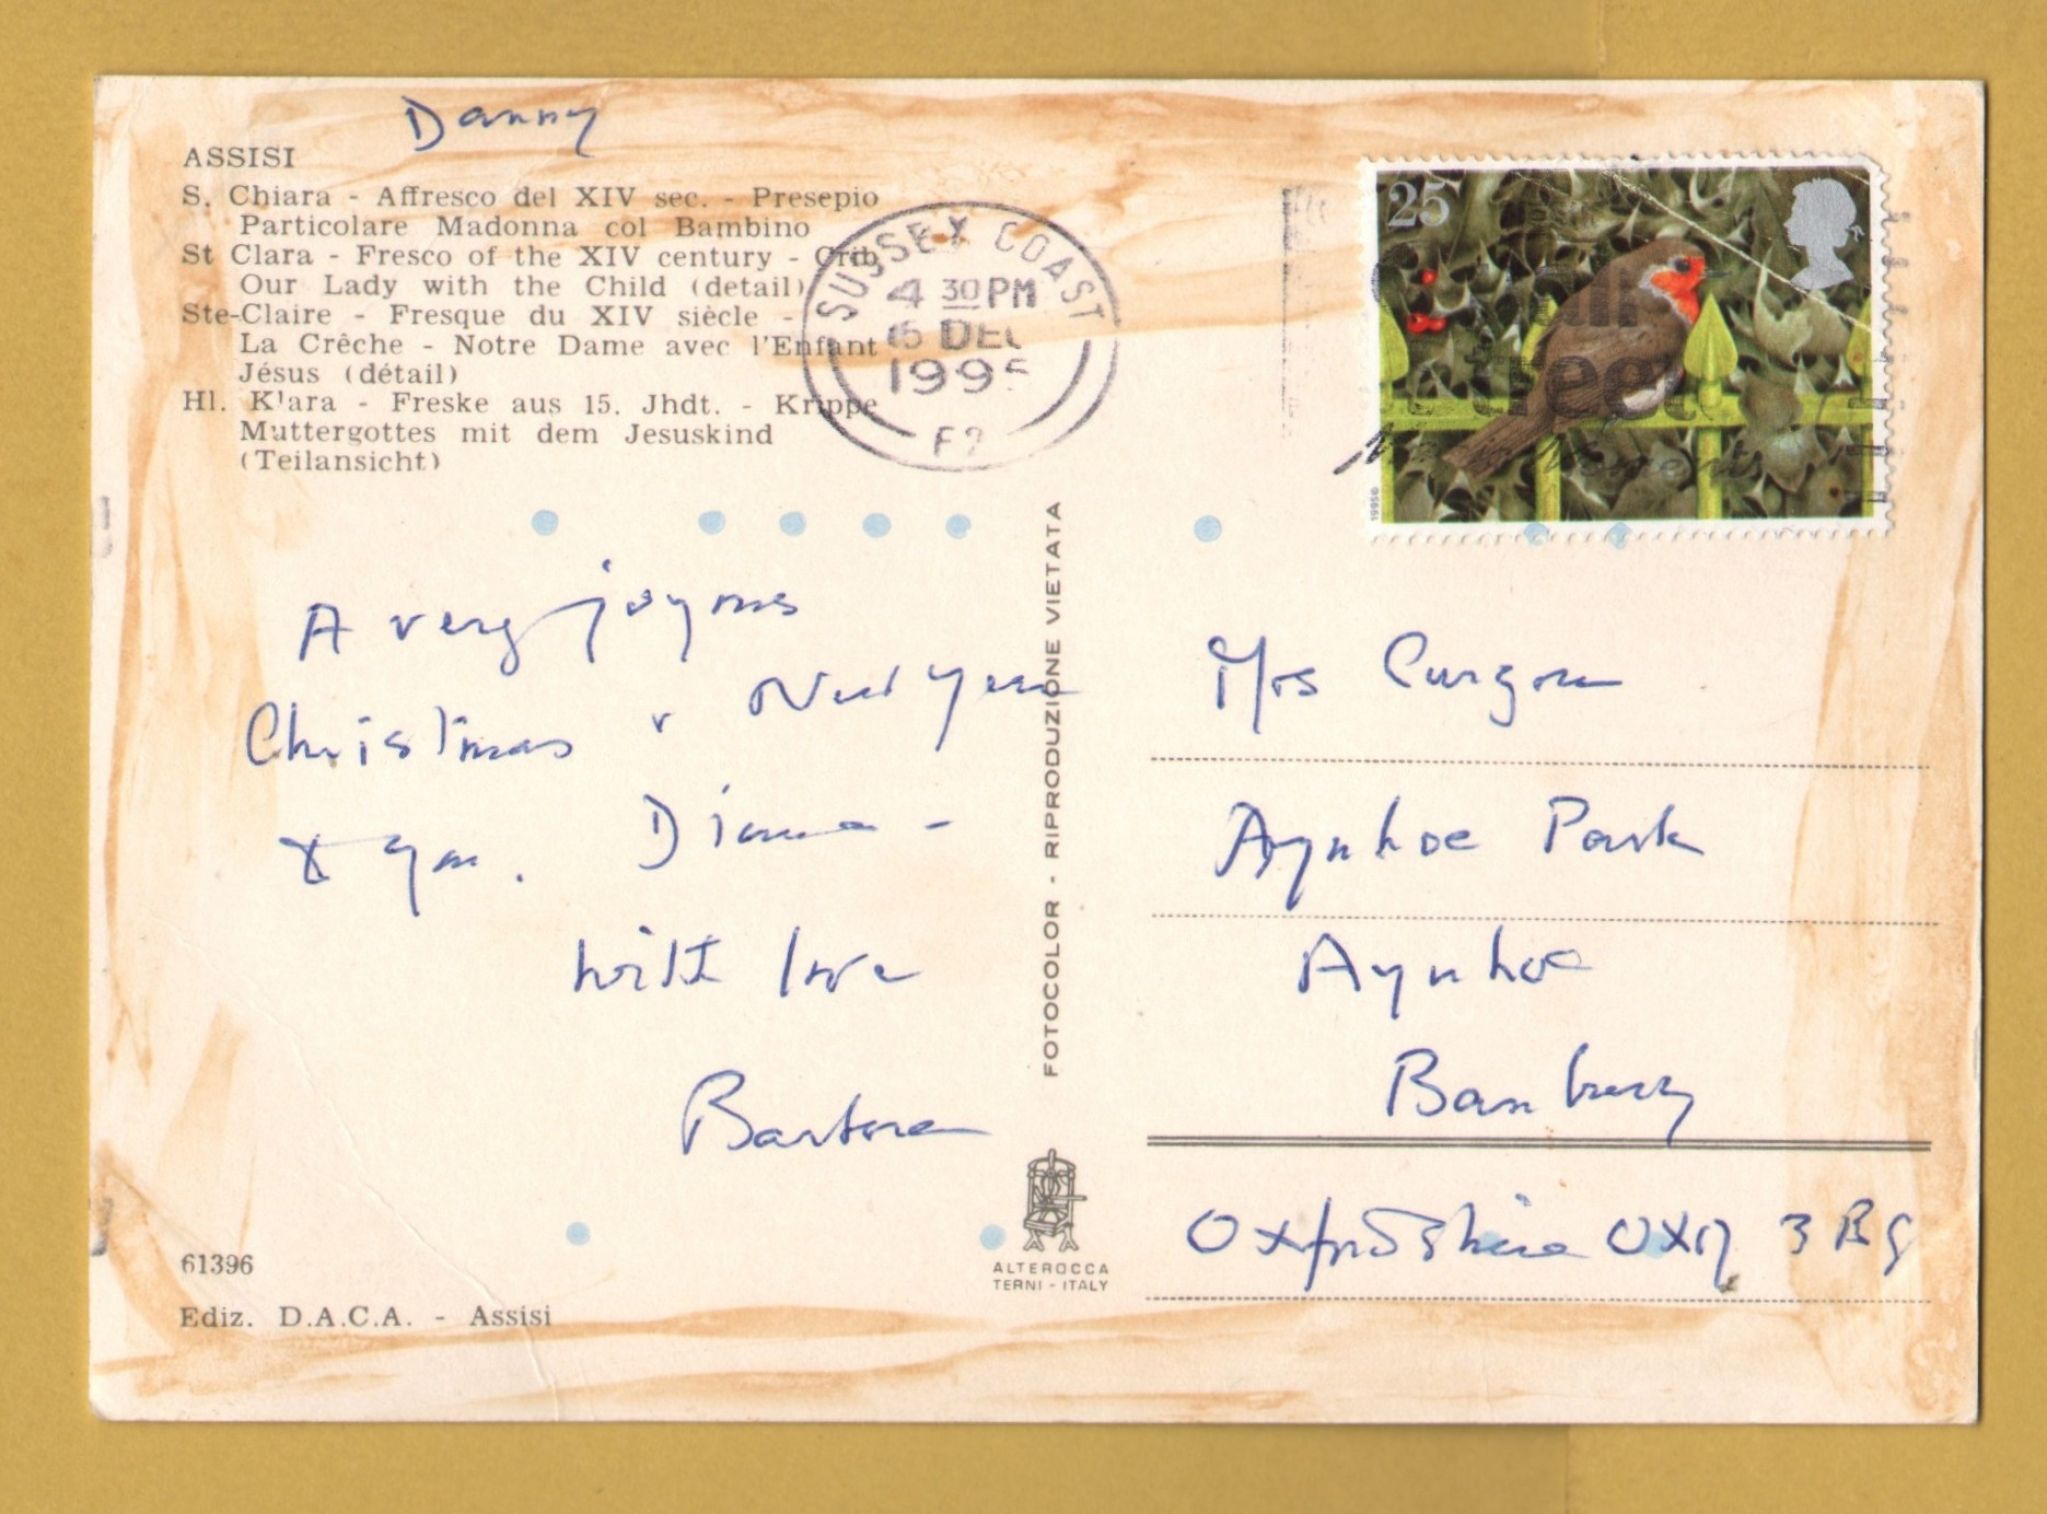 Danny
ASSISI
S. Chiara - Affresco del XIV sec. - Presepio
Particolare Madonna col Bambino
St Clara - Fresco of the XIV century - Crib
Our Lady with the Child (detail)
Ste-Claire - Fresque du XIV siècle -
La Crêche - Notre Dame avec l'Enfant
Jésus (détail)
Hl. Klara - Freske aus 15. Jhdt. - Krippe
Muttergottes mit dem Jesuskind
(Teilansicht)
SUSSEX COAST
4 30 PM
15 DEC
1995
25
1995
A very joyous
Christmas & New Year
to you. Diana -
with love
Barbara
FOTOCOLOR - RIPRODUZIONE VIETATA
Mrs Curzon
Aynhoe Park
Aynhoe
Banbury
Oxfordshire OX17 3BG
61396
Ediz. D.A.C.A. - Assisi
ALTEROCCA
TERNI - ITALY